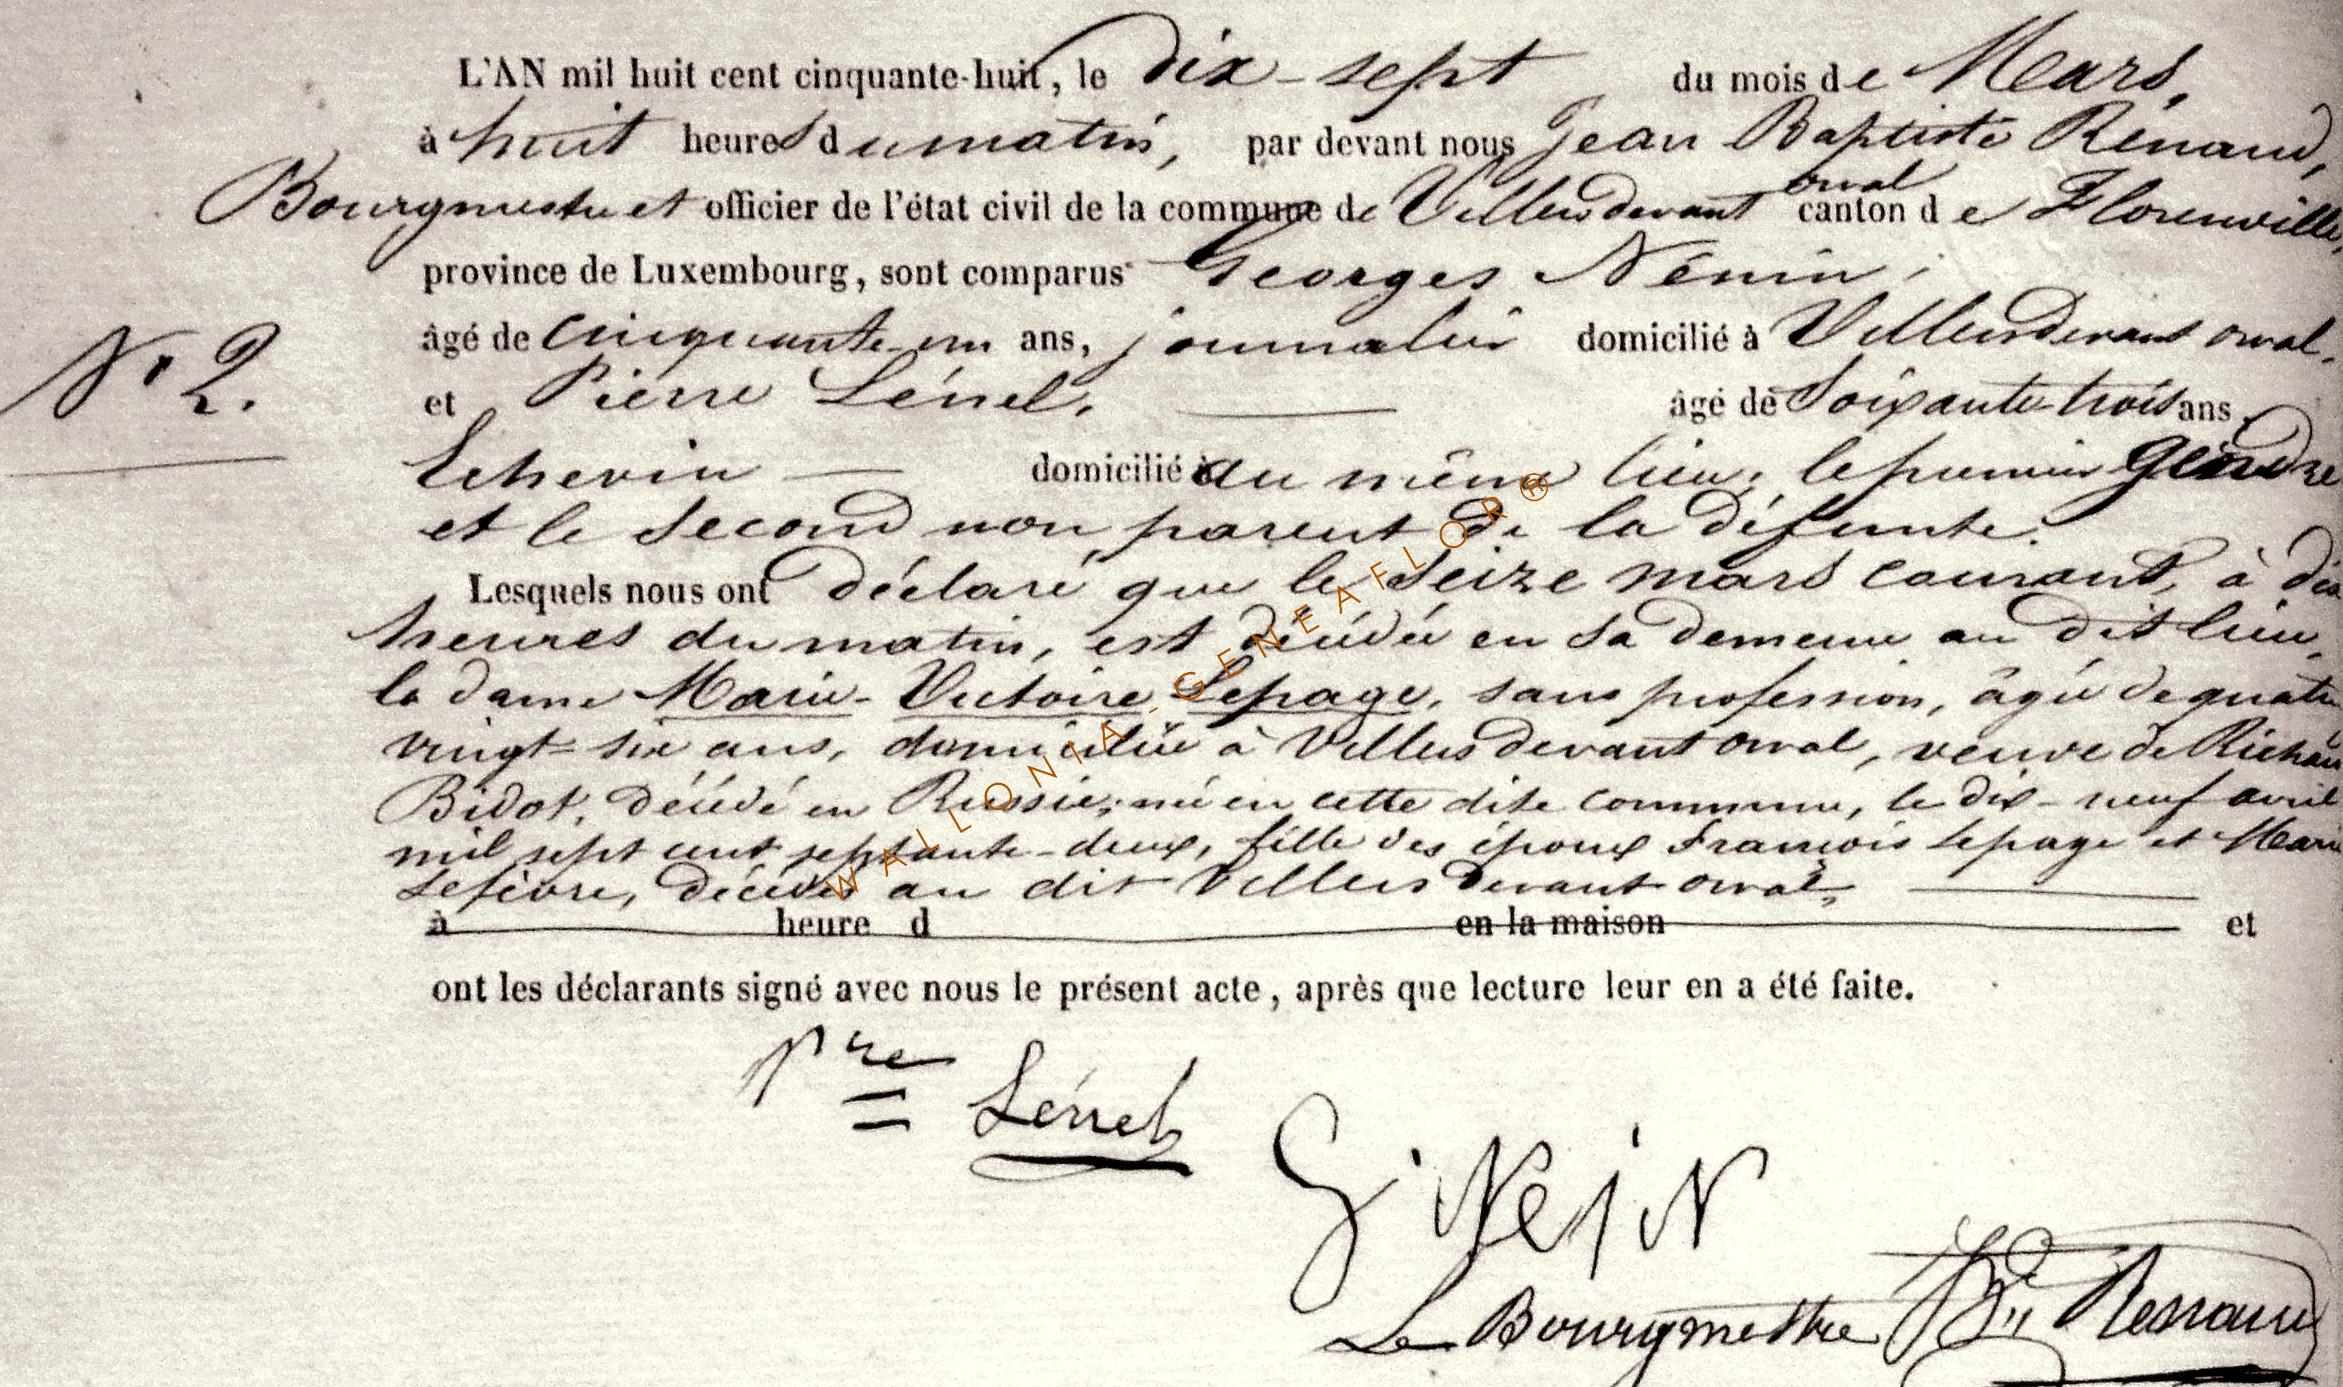 L'AN mil huit cent cinquante-huit, le dix-sept du mois de Mars,
à huit heures du matin, par devant nous Jean Baptiste Renaud,
orval
Bourgmestre et officier de l'état civil de la commune de Villers devant canton de Florenville,
province de Luxembourg, sont comparus Georges Nénin,
âgé de cinquante-un ans, journalier domicilié à Villers devant orval.
N° 2.
et Pierre Lénel. âgé de Soixante-trois ans
Echevin domicilié à du même lieu, le premier Gendre
et le second non parent de la défunte.
Lesquels nous ont déclaré que le Seize mars courant, à dix
heures du matin, est décédée en sa demeure au dit lieu,
la dame Marie-Victoire Lepage, sans profession, âgée de quatre
vingt-six ans, domiciliée à Villers devant orval, veuve de Richard
Bidot, décédé en Russie; née en cette dite commune, le dix-neuf avril
mil sept cent septante-deux, fille des époux François Lepage et Marie
Lefèvre, décédés au dit Villers devant orval,
à heure d en la maison et
ont les déclarants signé avec nous le présent acte, après que lecture leur en a été faite.
Pre Lénel
G NéiN
Le Bourgmestre Renaud
WALLONIA-GENEAFLOR®